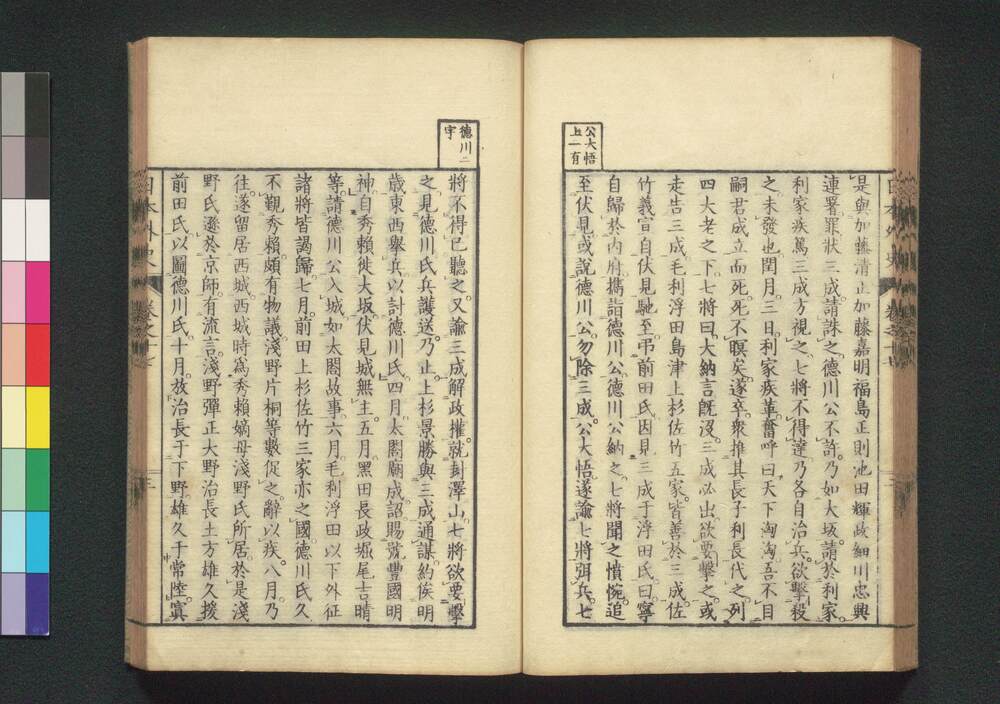 公大悟
上一有
是與加藤清正加藤嘉明福島正則池田輝政細川忠興
連署罪狀三成請誅之德川公不許乃如大坂請於利家
利家疾篤三成方視之七將不得達乃各自治兵欲擊殺
之未發也閏月三日利家疾革奮呼曰天下洶洶吾不目
嗣君成立而死死不瞑矣遂卒衆推其長子利長代之列
四大老之下七將曰大納言既沒三成必出欲要擊之或
走告三成毛利浮田島津上杉佐竹五家皆善於三成佐
竹義宣自伏見馳至弔前田氏因見三成于浮田氏曰寧
自歸於內府攜詣德川公德川公納之七將聞之憤惋追
至伏見或說德川公勿除三成公大悟遂諭七將弭兵七
德川二
字
將不得已聽之又諭三成解政權就封澤山七將欲要擊
之見德川氏兵護送乃止上杉景勝與三成通謀約俟明
歲東西舉兵以討德川氏四月太閤廟成詔賜號豐國明
神自秀賴徙大坂伏見城無主五月黑田長政堀尾吉晴
等請德川公入城如太閤故事六月毛利浮田以下外征
諸將皆謁歸七月前田上杉佐竹三家亦之國德川氏久
不覲秀賴頗有物議淺野片桐等數促之辭以疾八月乃
往遂留居西城西城時爲秀賴嫡母淺野氏所居於是淺
野氏遜於京師有流言淺野彈正大野治長土方雄久援
前田氏以圖德川氏十月放治長于下野雄久于常陸寘